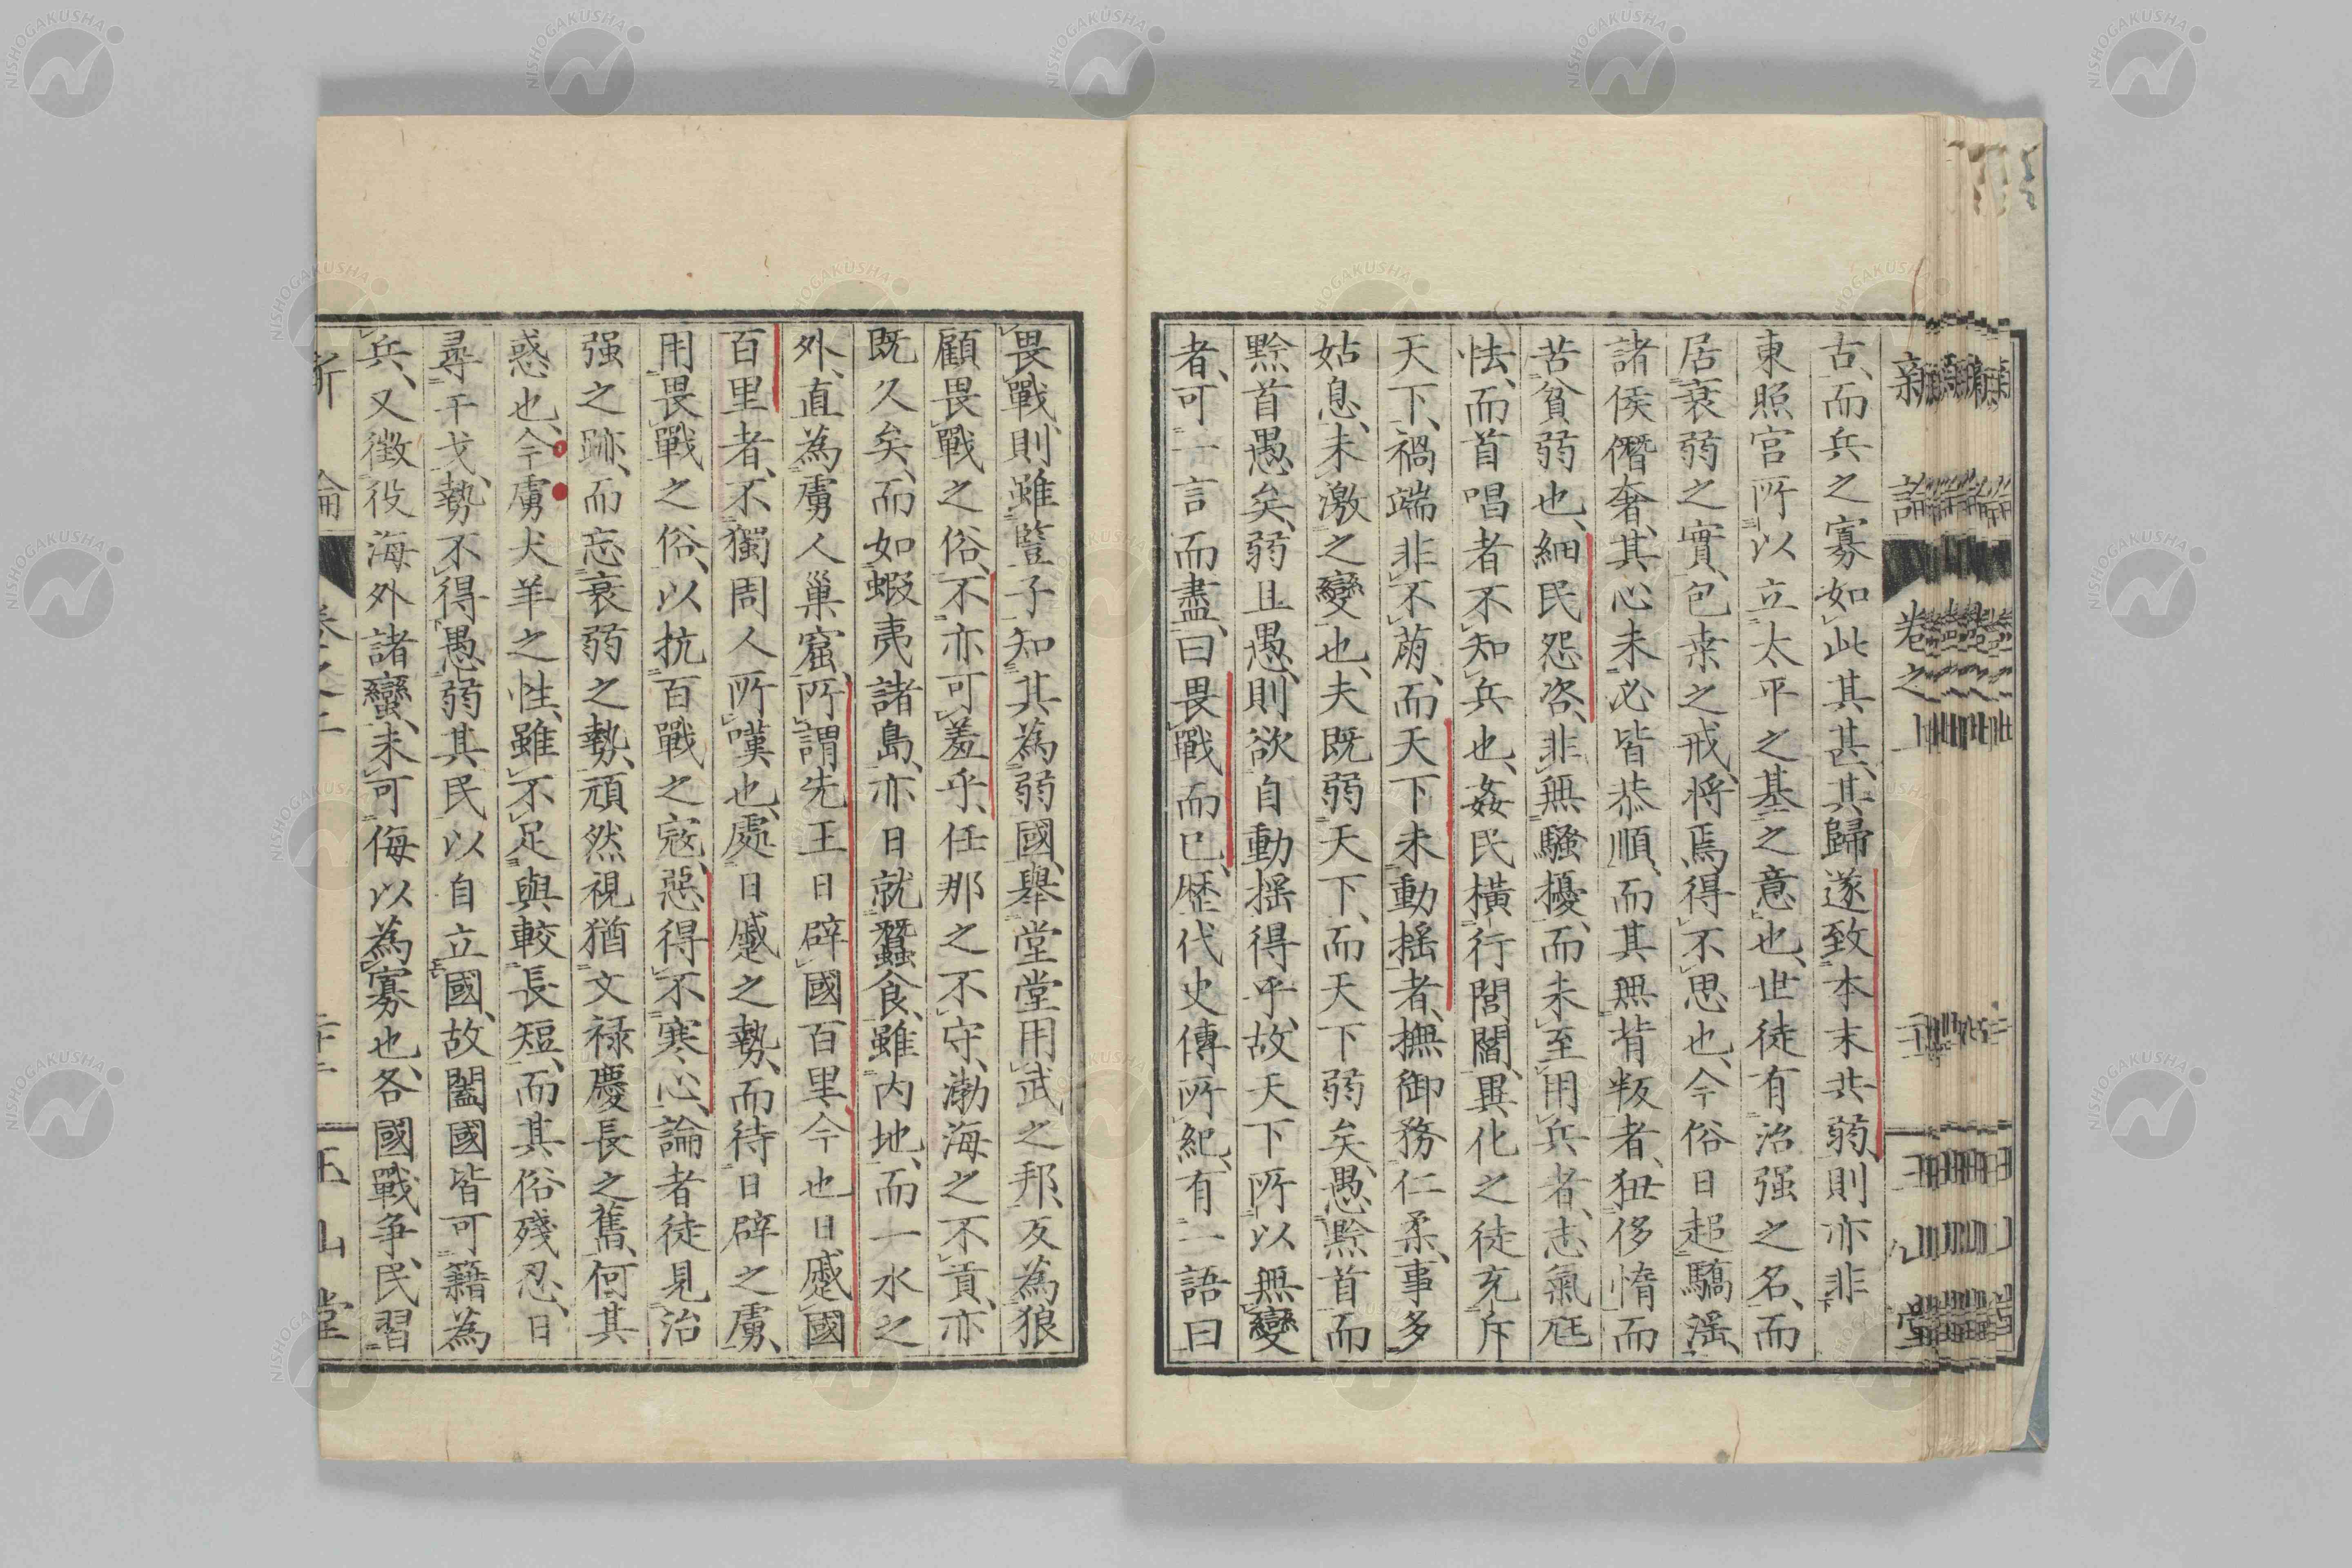 古、而兵之寡如此其甚、其歸遂致本末共弱、則亦非
東照宮所以立太平之基之意也、世徒有治强之名、而
居衰弱之實、包桒之戒、將焉得不思也、今俗日趍驕滛、
諸侯僭奢、其心未必皆恭順、而其無背叛者、狃侈惰而
苦貧弱也、細民怨咨、非無騷擾、而未至用兵者、志氣尫
怯、而首唱者不知兵也、姦民橫行閭閻、異化之徒充斥
天下、禍端非不萠、而天下未動揺者、撫御務仁柔、事多
姑息、未激之變也、夫既弱天下、而天下弱矣、愚黔首而
黔首愚矣、弱且愚、則欲自動揺得乎、故天下所以無變
者、可一言而盡、曰畏戰而已、歷代史傳所紀、有一語曰
畏戰、則雖豎子知其為弱國、舉堂堂用武之邦、反為狼
顧畏戰之俗、不亦可羞乎、任那之不守、渤海之不貢、亦
既久矣、而如蝦夷諸島、亦日就蠶食、雖內地、而一水之
外、直為虜人巢窟、所謂先王日辟國百里、今也日蹙國
百里者、不獨周人所嘆也、處日蹙之勢、而待日辟之虜、
用畏戰之俗、以抗百戰之寇、惡得不寒心、論者徒見治
强之跡、而忘衰弱之勢、頑然視猶文禄慶長之舊、何其
惑也、今虜犬羊之性、雖不足與較長短、而其俗殘忍、日
尋干戈、勢不得愚弱其民以自立國、故闔國皆可籍為
兵、又徵役海外諸蠻、未可侮以為寡也、各國戰爭、民習
新論 卷之上 玉山堂